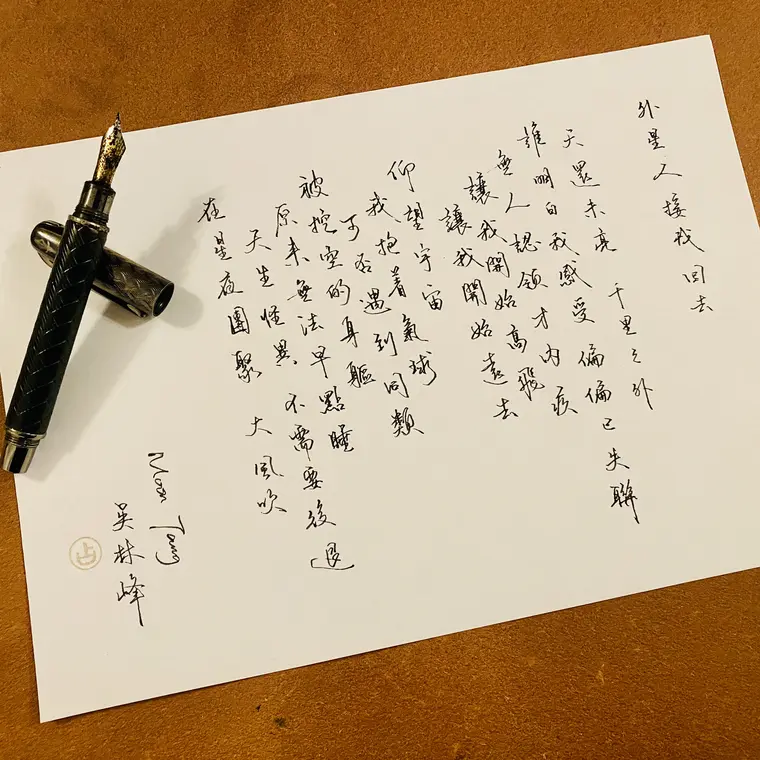 外星人接我回去
天還未亮 千里之外
誰明白我感受 偏偏已失聯
無人認領才內疚
讓我開始高飛
讓我開始遠去
仰望宇宙
我抱着氣球
可否遇到同類
被挖空的身軀
原來無法早點睡
天生怪異 不需要後退
在星夜團聚 大風吹
Moon Tang
吳林峰
占